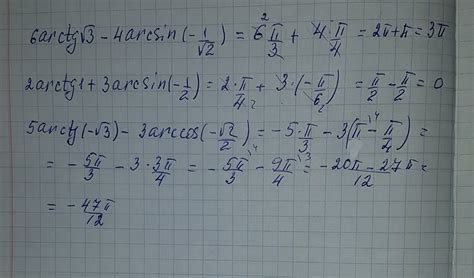 6arctg√3 - 4arcsin(-1/√2) = 6² π/3 + 4·π/4 = 2π+π = 3π
2arctg1 + 3arcsin(-1/2) = 2·π/4₂ + 3·(-π/6₂) = π/2 - π/2 = 0
5arctg(-√3) - 3arccos(-√2/2) = -5·π/3 - 3(π - π/4) =
= -5π/3 - 3·3π/4 = -5π/3 \4 - 9π/4 \3 = (-20π - 27π)/12 =
= -47π/12